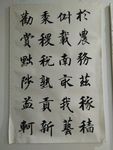 於農務茲稼穡
俶載南畝我藝
黍稷稅熟貢新
勸賞黜陟孟軻